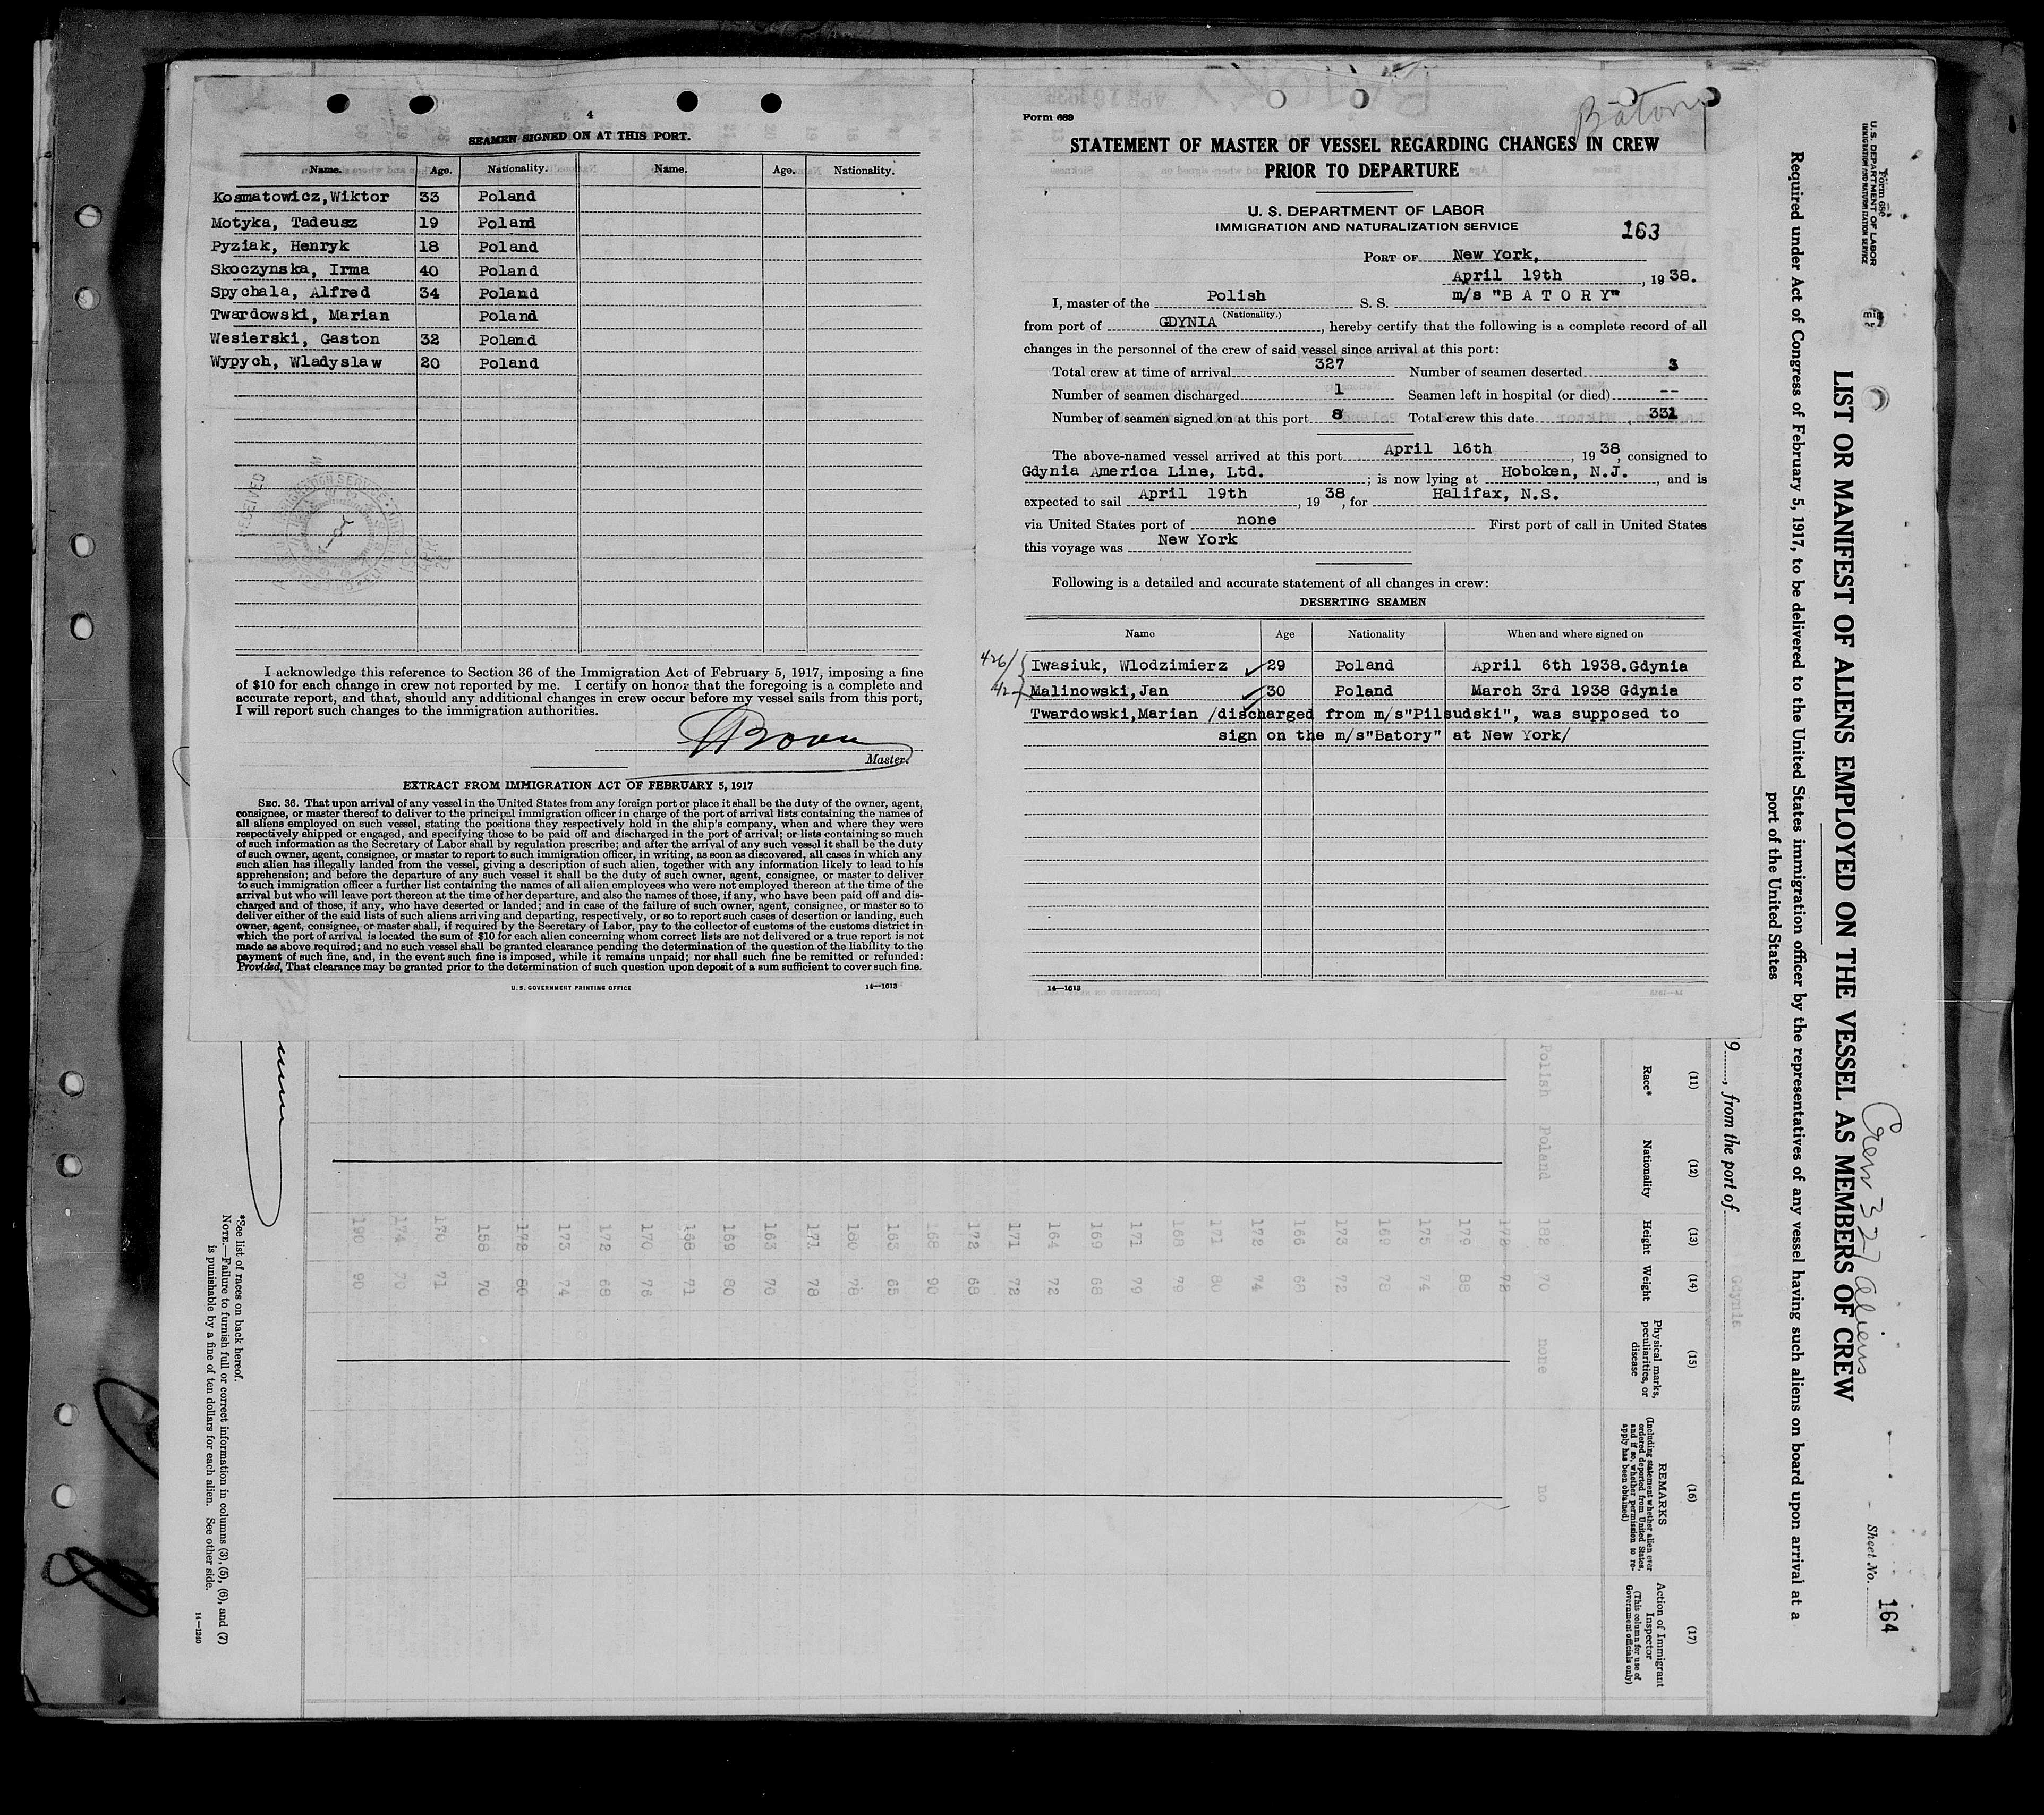 4
SEAMEN SIGNED ON AT THIS PORT.
Name. Age. Nationality. Name. Age. Nationality.
Kosmatowicz,Wiktor 33 Poland
Motyka, Tadeusz 19 Poland
Pyziak, Henryk 18 Poland
Skoczynska, Irma 40 Poland
Spychala, Alfred 34 Poland
Twardowski, Marian Poland
Wesierski, Gaston 32 Poland
Wypych, Wladyslaw 20 Poland
RECEIVED
I acknowledge this reference to Section 36 of the Immigration Act of February 5, 1917, imposing a fine
of $10 for each change in crew not reported by me. I certify on honor that the foregoing is a complete and
accurate report, and that, should any additional changes in crew occur before my vessel sails from this port,
I will report such changes to the immigration authorities.
Master.
EXTRACT FROM IMMIGRATION ACT OF FEBRUARY 5, 1917
SEC. 36. That upon arrival of any vessel in the United States from any foreign port or place it shall be the duty of the owner, agent,
consignee, or master thereof to deliver to the principal immigration officer in charge of the port of arrival lists containing the names of
all aliens employed on such vessel, stating the positions they respectively hold in the ship's company, when and where they were
respectively shipped or engaged, and specifying those to be paid off and discharged in the port of arrival; or lists containing so much
of such information as the Secretary of Labor shall by regulation prescribe; and after the arrival of any such vessel it shall be the duty
of such owner, agent, consignee, or master to report to such immigration officer, in writing, as soon as discovered, all cases in which any
such alien has illegally landed from the vessel, giving a description of such alien, together with any information likely to lead to his
apprehension; and before the departure of any such vessel it shall be the duty of such owner, agent, consignee, or master to deliver
to such immigration officer a further list containing the names of all alien employees who were not employed thereon at the time of the
arrival but who will leave port thereon at the time of her departure, and also the names of those, if any, who have been paid off and dis-
charged and of those, if any, who have deserted or landed; and in case of the failure of such owner, agent, consignee, or master so to
deliver either of the said lists of such aliens arriving and departing, respectively, or so to report such cases of desertion or landing, such
owner, agent, consignee, or master shall, if required by the Secretary of Labor, pay to the collector of customs of the customs district in
which the port of arrival is located the sum of $10 for each alien concerning whom correct lists are not delivered or a true report is not
made as above required; and no such vessel shall be granted clearance pending the determination of the question of the liability to the
payment of such fine, and, in the event such fine is imposed, while it remains unpaid; nor shall such fine be remitted or refunded:
Provided, That clearance may be granted prior to the determination of such question upon deposit of a sum sufficient to cover such fine.
U. S. GOVERNMENT PRINTING OFFICE 14—1613
Form 689
Batory
STATEMENT OF MASTER OF VESSEL REGARDING CHANGES IN CREW
PRIOR TO DEPARTURE
U. S. DEPARTMENT OF LABOR
IMMIGRATION AND NATURALIZATION SERVICE
163
PORT OF New York,
April 19th, 1938.
I, master of the Polish S. S. m/s "B A T O R Y"
(Nationality.)
from port of GDYNIA, hereby certify that the following is a complete record of all
changes in the personnel of the crew of said vessel since arrival at this port:
Total crew at time of arrival 327 Number of seamen deserted 3
Number of seamen discharged 1 Seamen left in hospital (or died) --
Number of seamen signed on at this port 8 Total crew this date 331
The above-named vessel arrived at this port April 16th, 1938, consigned to
Gdynia America Line, Ltd.; is now lying at Hoboken, N.J., and is
expected to sail April 19th, 1938, for Halifax, N.S.
via United States port of none First port of call in United States
this voyage was New York
Following is a detailed and accurate statement of all changes in crew:
DESERTING SEAMEN
Name Age Nationality When and where signed on
426/ Iwasiuk, Wlodzimierz 29 Poland April 6th 1938.Gdynia
Malinowski,Jan 30 Poland March 3rd 1938 Gdynia
Twardowski,Marian /discharged from m/s"Pilsudski", was supposed to
sign on the m/s"Batory" at New York/
14—1613
Form 680
U. S. DEPARTMENT OF LABOR
IMMIGRATION AND NATURALIZATION SERVICE
LIST OR MANIFEST OF ALIENS EMPLOYED ON THE VESSEL AS MEMBERS OF CREW
Crew 327 aliens
Sheet No. 164
Required under Act of Congress of February 5, 1917, to be delivered to the United States immigration officer by the representatives of any vessel having such aliens on board upon arrival at a
port of the United States
9, from the port of Gdynia
(11) (12) (13) (14) (15) (16) (17)
Race* Nationality Height Weight
Physical marks, peculiarities, or disease
REMARKS
(Including statement whether alien ever ordered deported from United States, and if so, whether permission to re-apply has been obtained)
Action of Immigrant Inspector
(This column for use of Government officials only)
Polish Poland 182 70 none no
*See list of races on back hereof.
NOTE.—Failure to furnish full or correct information in columns (3), (5), (6), and (7)
is punishable by a fine of ten dollars for each alien. See other side.
14—1240